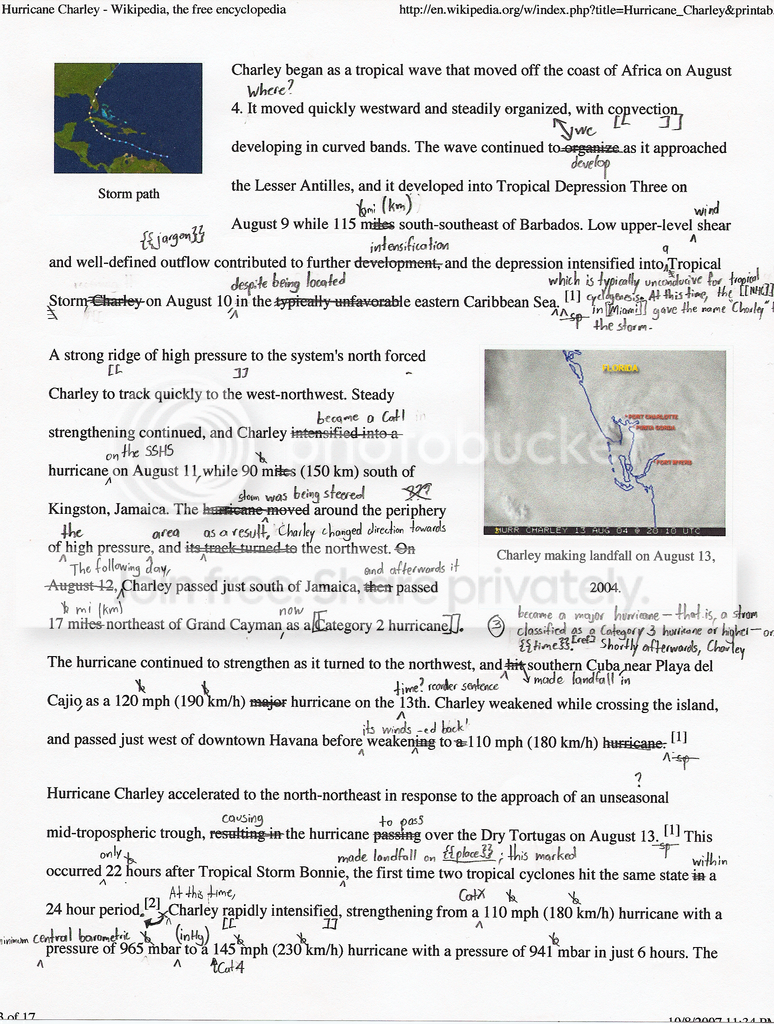 Hurricane Charley - Wikipedia, the free encyclopedia
http://en.wikipedia.org/w/index.php?title=Hurricane_Charley&printab
Charley began as a tropical wave that moved off the coast of Africa on August
Where?
4. It moved quickly westward and steadily organized, with convection
[[ ]]
wc
developing in curved bands. The wave continued to organize as it approached
develop
Storm path
the Lesser Antilles, and it developed into Tropical Depression Three on
mi (km)
wind
August 9 while 115 miles south-southeast of Barbados. Low upper-level shear
{{jargon}}
intensification
a
and well-defined outflow contributed to further development, and the depression intensified into Tropical
despite being located
which is typically unconducive for tropical
Storm Charley on August 10 in the typically unfavorable eastern Caribbean Sea. [1]
cyclogenesis. At this time, the [[NHC]]
sp
in [[Miami]] gave the name "Charley" t
the storm.
A strong ridge of high pressure to the system's north forced
[[ ]]
FLORIDA
Charley to track quickly to the west-northwest. Steady
became a Cat 1
PORT CHARLOTTE
PUNTA GORDA
strengthening continued, and Charley intensified into a
on the SSHS
photobucket
PORT MYERS
hurricane on August 11, while 90 miles (150 km) south of
storm was being steered
Kingston, Jamaica. The hurricane moved around the periphery
the area as a result, Charley changed direction towards
HURR CHARLEY 13 AUG 04 @ 20:10 UTC
of high pressure, and its track turned to the northwest. On
Charley making landfall on August 13,
2004.
The following day,
and afterwards it
August 12, Charley passed just south of Jamaica, then passed
Join free. Share privately.
mi (km)
now
17 miles northeast of Grand Cayman as a [[Category 2 hurricane]].
3
became a major hurricane — that is, a storm
classified as a Category 3 hurricane or higher — on
{{time}}. [ref] Shortly afterwards, Charley
The hurricane continued to strengthen as it turned to the northwest, and hit southern Cuba near Playa del
made landfall in
time? reorder sentence
Cajio, as a 120 mph (190 km/h) major hurricane on the 13th. Charley weakened while crossing the island,
its winds -ed back
and passed just west of downtown Havana before weakening to a 110 mph (180 km/h) hurricane. [1]
sp
?
Hurricane Charley accelerated to the north-northeast in response to the approach of an unseasonal
causing
to pass
mid-tropospheric trough, resulting in the hurricane passing over the Dry Tortugas on August 13. [1] This
sp
only
made landfall on {{place}}; this marked
within
occurred 22 hours after Tropical Storm Bonnie, the first time two tropical cyclones hit the same state in a
At this time,
Cat X
24 hour period. [2] Charley rapidly intensified, strengthening from a 110 mph (180 km/h) hurricane with a
[[ ]]
minimum central barometric
(intly)
pressure of 965 mbar to a 145 mph (230 km/h) hurricane with a pressure of 941 mbar in just 6 hours. The
Cat 4
3 of 17
10/8/2007 11:34 PM